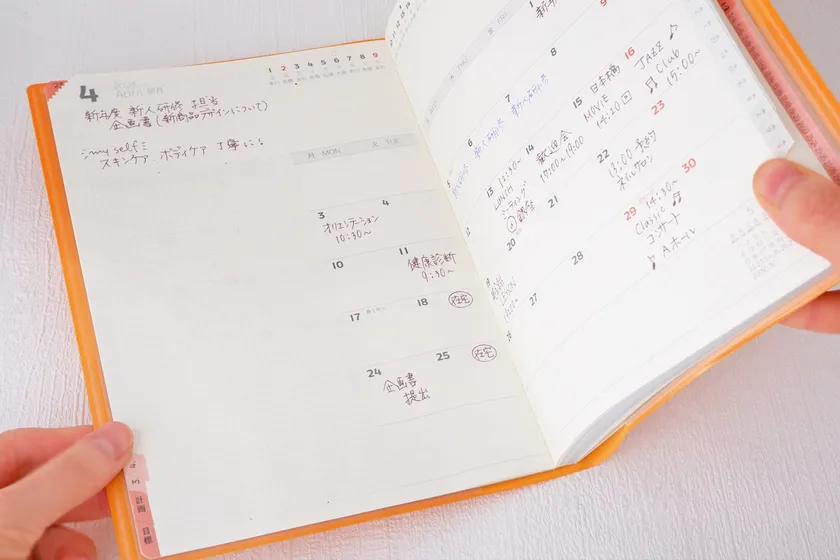 4
APRIL
新年度 新人研修 担当
企画書(新商品デザインについて)
my self
スキンケア ボディケア 丁寧に!
1 2 3 4 5 6 7 8 9
月 MON
火 TUE
3
オリエンテーション
10:30~
4
10
11
健康診断
9:30~
17
18
在宅
24
企画書
提出
25
在宅
5
6
新人研修
7
新人研修
8
1
9
12
13
12:30~
LUNCH
ミーティング
14
歓迎会
17:00~19:00
15
日本橋
MOVIE
14:20
16
JAZZ ♪
♫ Club
15:00~
20
21
22
13:00~予約
ネイルサロン
23
27
28
29
14:30~
Classic ♫
コンサート
♪ Aホール
30
計画
目標